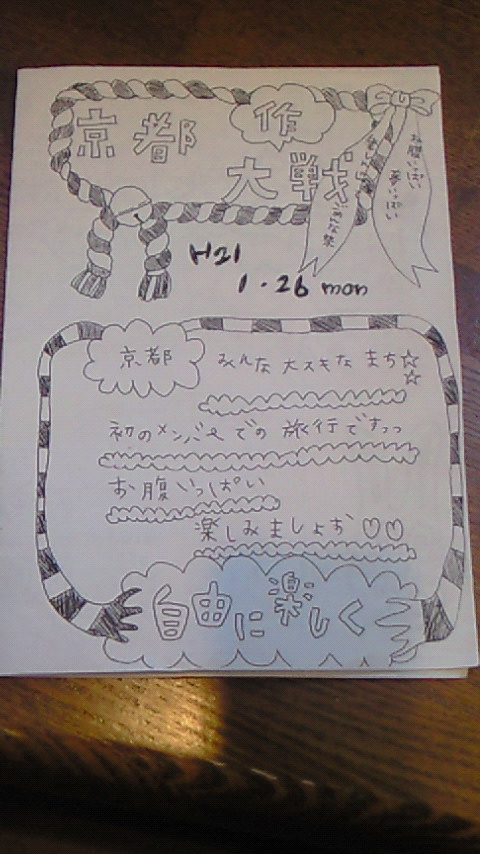 京都
作
大戦
お腹いっぱい
夢いっぱい
H21
1・26 mon
京都
みんな大スキなまち☆☆
初のメンバーでの旅行ですっっ
お腹いっぱい
楽しみましょお♡♡
自由に楽しく